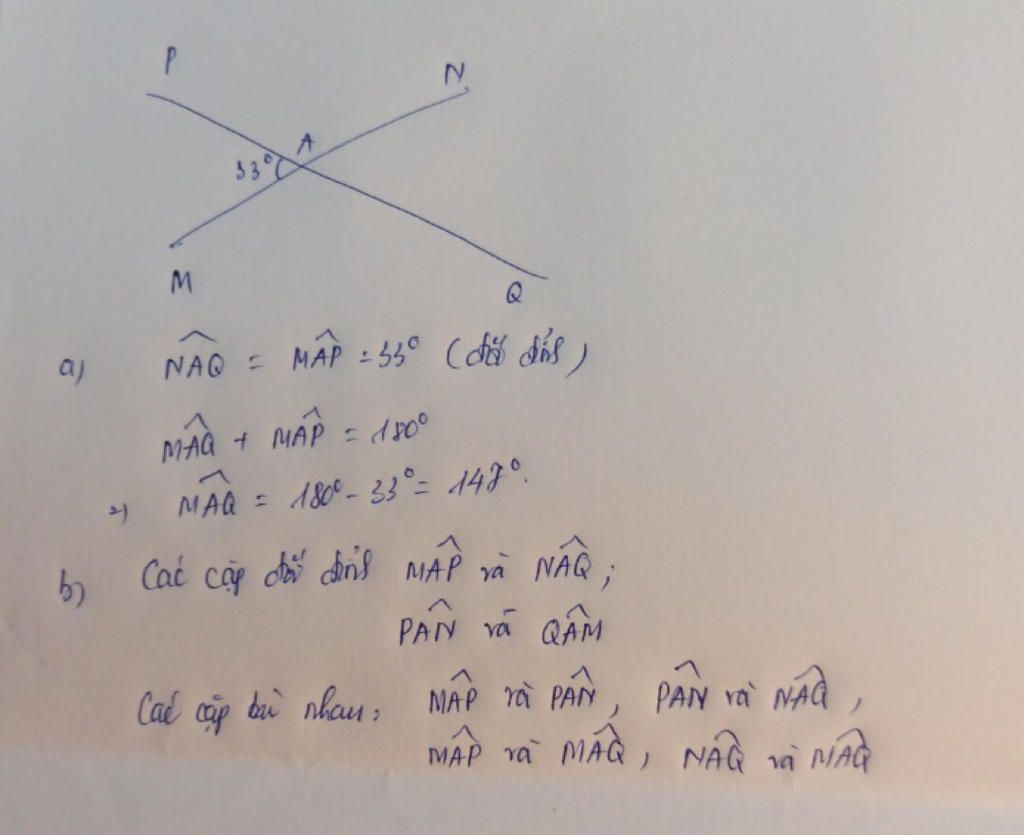 P
N
A
33°
M
Q
a) NAQ̂ = MAP̂ = 33° (đối đỉnh)
MAQ̂ + MAP̂ = 180°
=) MAQ̂ = 180° - 33° = 147°.
b) Các cặp đối đỉnh MAP̂ và NAQ̂ ;
PAN̂ và QAM̂
Các cặp bù nhau: MAP̂ và PAN̂ , PAN̂ và NAQ̂ ,
MAP̂ và MAQ̂ , NAQ̂ và MAQ̂